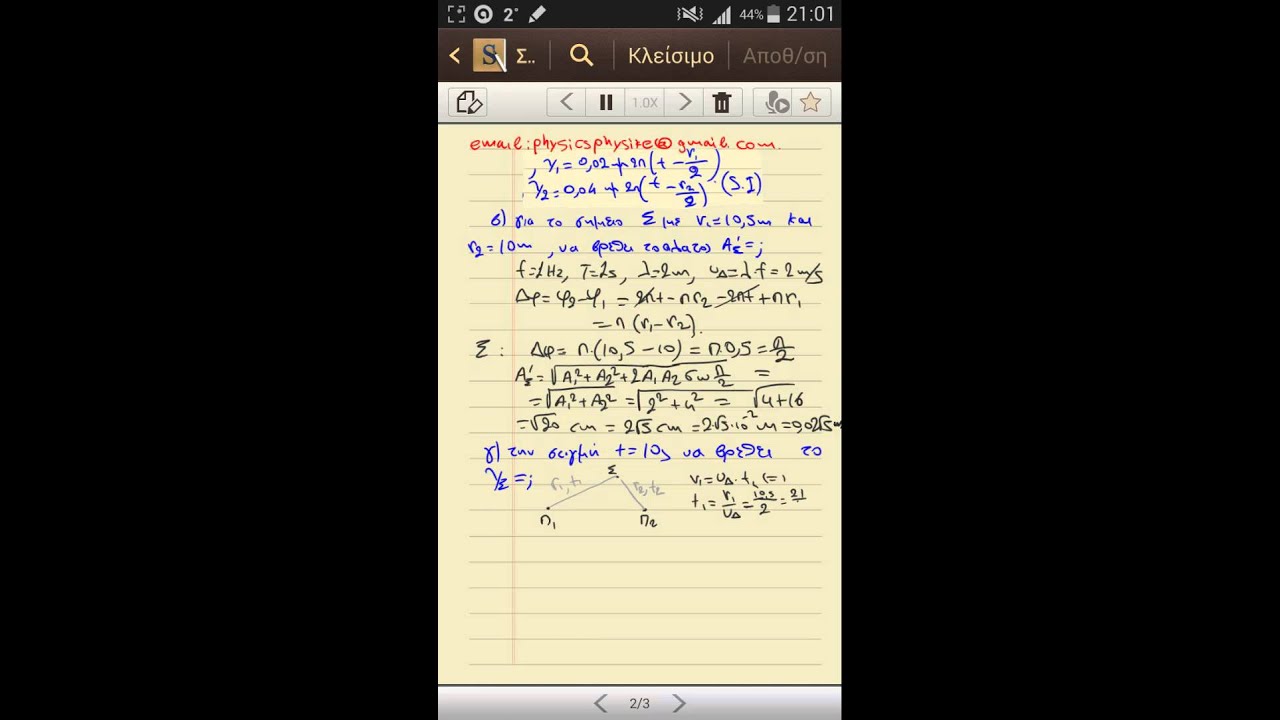 2° 44% 21:01
S Σ.. Κλείσιμο Αποθ/ση
1.0X
email:physicsphysike@gmail.com.
, y₁=0,02ημ2π(t-r₁/2)
, y₂=0,04ημ2π(t-r₂/2) (S.I)
β) για το σημειο Σ με r₁=10,5m και
r₂=10m, να βρεθει το πλατο A'Σ=;
f=1Hz, T=1s, λ=2m, υΔ=λ·f=2m/s
Δφ=φ₂-φ₁ = 2πt-πr₂-2πt+πr₁
=π(r₁-r₂).
Σ: Δφ=π·(10,5-10)=π·0,5=π/2
A'Σ=√A₁²+A₂²+2A₁A₂συνπ/2 =
=√A₁²+A₂² =√2²+4² = √4+16
=√20 cm = 2√5 cm =2√5·10⁻² m =0,02√5m
γ) την στιγμή t=10s να βρεθει το
yΣ=;
Σ
r₁,t₁ r₂,t₂
Π₁ Π₂
r₁=υΔ·t₁ (=)
t₁=r₁/υΔ=10,5/2=21
2/3